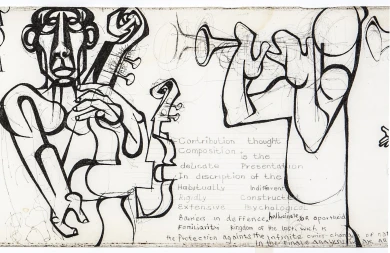 Contribution thought
Composition
is the
delicate Presentation
In discription of the
Habitually indifferent
Rigidly Constructed
Extensive Mythological
Barriers in deffence, hallucinate be aportioned
Familiarites Kingdom of the lost, which is
the Protection against the infinite over change of
In the Finale Analysis